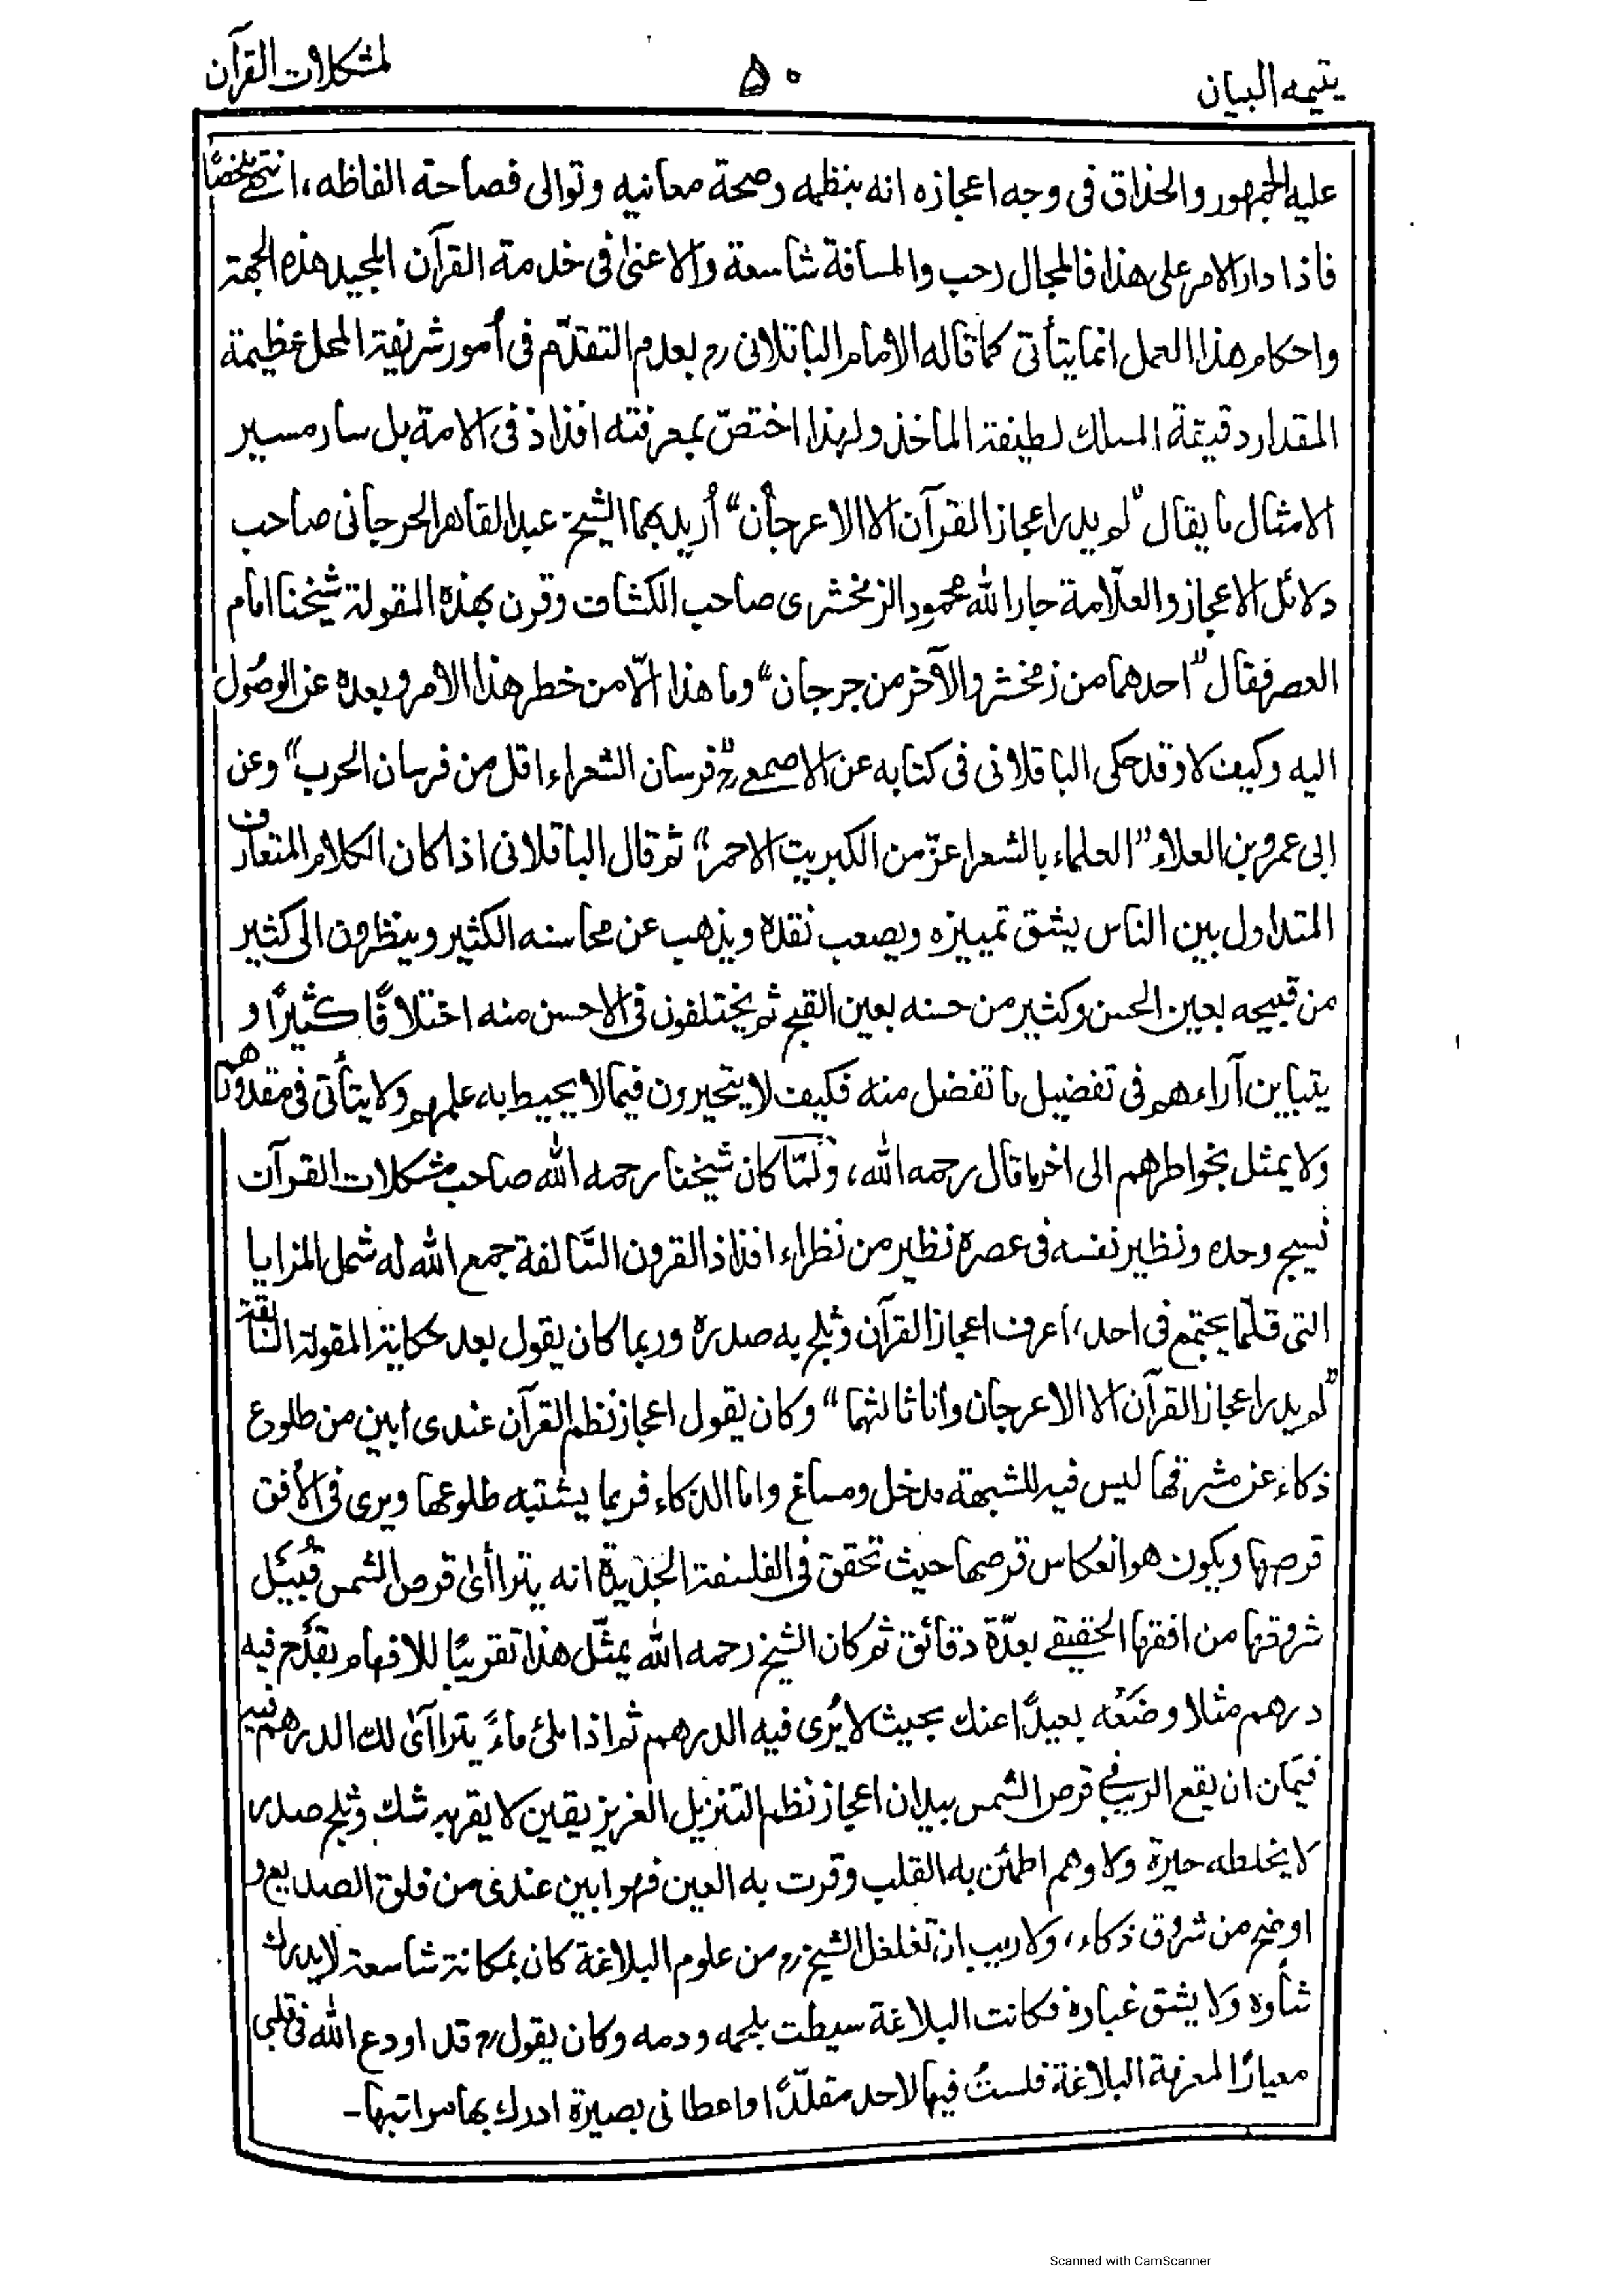 يتيمه البيان
٥٠
لمشكلات القرآن
عليه الجمهور والحذاق فى وجه اعجازه انه بنظمه وصحة معانيه وتوالى فصاحة الفاظه، انتهى ملخصًا
فاذا دار الامر على هذا فالمجال رحب والمسافة شاسعة والاعتنى فى خدمة القرآن المجيد هذه الجهة
واحكام هذا العمل انما يتأتى كما قاله الامام الباقلانى رح بعدم التقدّم فى أمور شريفة المحل عظيمة
المقدار دقيقة المسلك لطيفة المأخذ ولهذا اختصّ بمعرفته افذاذ فى الامة بل سار مسير
الامثال ما يقال "لم يدر اعجاز القرآن الا الاعرجأن" أريد بهما الشيخ عبد القاهر الجرجانى صاحب
دلائل الاعجاز والعلّامة جار الله محمود الزمخشرى صاحب الكشاف وقرن بهذه المقولة شيخنا امام
العصر فقال "احدهما من زمخشر والآخر من جرجان" وما هذا الّا من خطر هذا الامر وبعده عن الوصُول
اليه وكيف لا وقد حكى الباقلانى فى كتابه عن الاصمعى رح "فرسان الشعراء اقل من فرسان الحرب" وعن
ابى عمرو بن العلاء "العلماء بالشعر اعزّ من الكبريت الاحمر" ثم قال الباقلانى اذا كان الكلام المتعارف
المتداول بين الناس يشق تمييزه ويصعب نقده ويذهب عن محاسنه الكثير وينظرون الى كثير
من قبيحه بعين الحسن وكثير من حسنه بعين القبح ثم يختلفون فى الاحسن منه اختلافًا كثيرًا و
يتباين آراءهم فى تفضيل ما تفضل منه فكيف لا يتحيرون فيما لا يحيط به علمهم ولا يتأتى فى مقدورهم
ولا يمثل بخواطرهم الى اخر ما قال رحمه الله، ولمّا كان شيخنا رحمه الله صاحب مشكلات القرآن
نسيج وحده ونظير نفسه فى عصره نظير من نظراء افذاذ القرون السّالفة جمع الله له شمل المزايا
التى قلّما يجتمع فى احد، اعرف اعجاز القرآن وثلج به صدره وربما كان يقول بعد حكاية المقولة السّابقة
"لم يدر اعجاز القرآن الا الاعرجان وانا ثالثهما" وكان يقول اعجاز نظم القرآن عندى ابين من طلوع
ذكاء عن مشرقها ليس فيه للشبهة مدخل ومساغ واما الذكاء فربما يشتبه طلوعها ويرى فى الأفق
قرصها ويكون هو انعكاس قرصها حيث تحقق فى الفلسفة الجديدة انه يتراأى قرص الشمس قُبيَل
شروقها من افقها الحقيقى بعدّة دقائق ثم كان الشيخ رحمه الله يمثّل هذا تقريبًا للافهام بقدَح فيه
درهم مثلا وضَعُه بعيدًا عنك بحيث لا يُرى فيه الدرهم ثم اذا ملئ ماءً يتراآى لك الدرهم فيه
فيمكن ان يقع الريب فى قرص الشمس بيد ان اعجاز نظم التنزيل العزيز يقين لا يقربه شك وثلج صدر
لا يخلطه حيرة ولا وهم اطمئن به القلب وقرت به العين فهو ابين عندى من فلق الصديع و
اوضح من شروق ذكاء، ولا ريب ان تغلغل الشيخ رح من علوم البلاغة كان بمكانة شاسعة لا يدرك
شأوه ولا يشق غباره فكانت البلاغة سيطت بلحمه ودمه وكان يقول رح قد اودع الله فى قلبى
معيارًا لمعرفة البلاغة فلستُ فيها لاحد مقلّدًا واعطانى بصيرة ادرك بها مراتبها-
Scanned with CamScanner